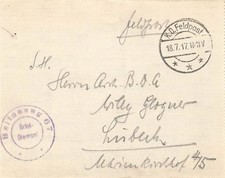 Feldpost
K.D. Feldpost
18.7.17.
S. H.
Herrn Arch. B.D.A
Willy Glogner
Lübeck
Marienkirchhof 4/5
Ballonzug 67
Brief-
Stempel